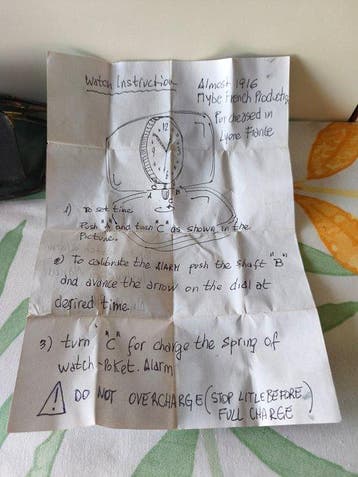 Watch Instruction
Almost 1916
Mybe French Production
Purchessed in
Lyone France
12
A
B
C
1) To set time
Push "A" and turn "C" as shown in the
Picture.
2) To calibrate the ALARM push the shaft "B"
and avance the arrow on the dial at
desired time.
3) turn "C" for charge the spring of
watch-Poket. Alarm
! DO NOT OVERCHARGE (STOP LITLE BEFORE
FULL CHARGE)